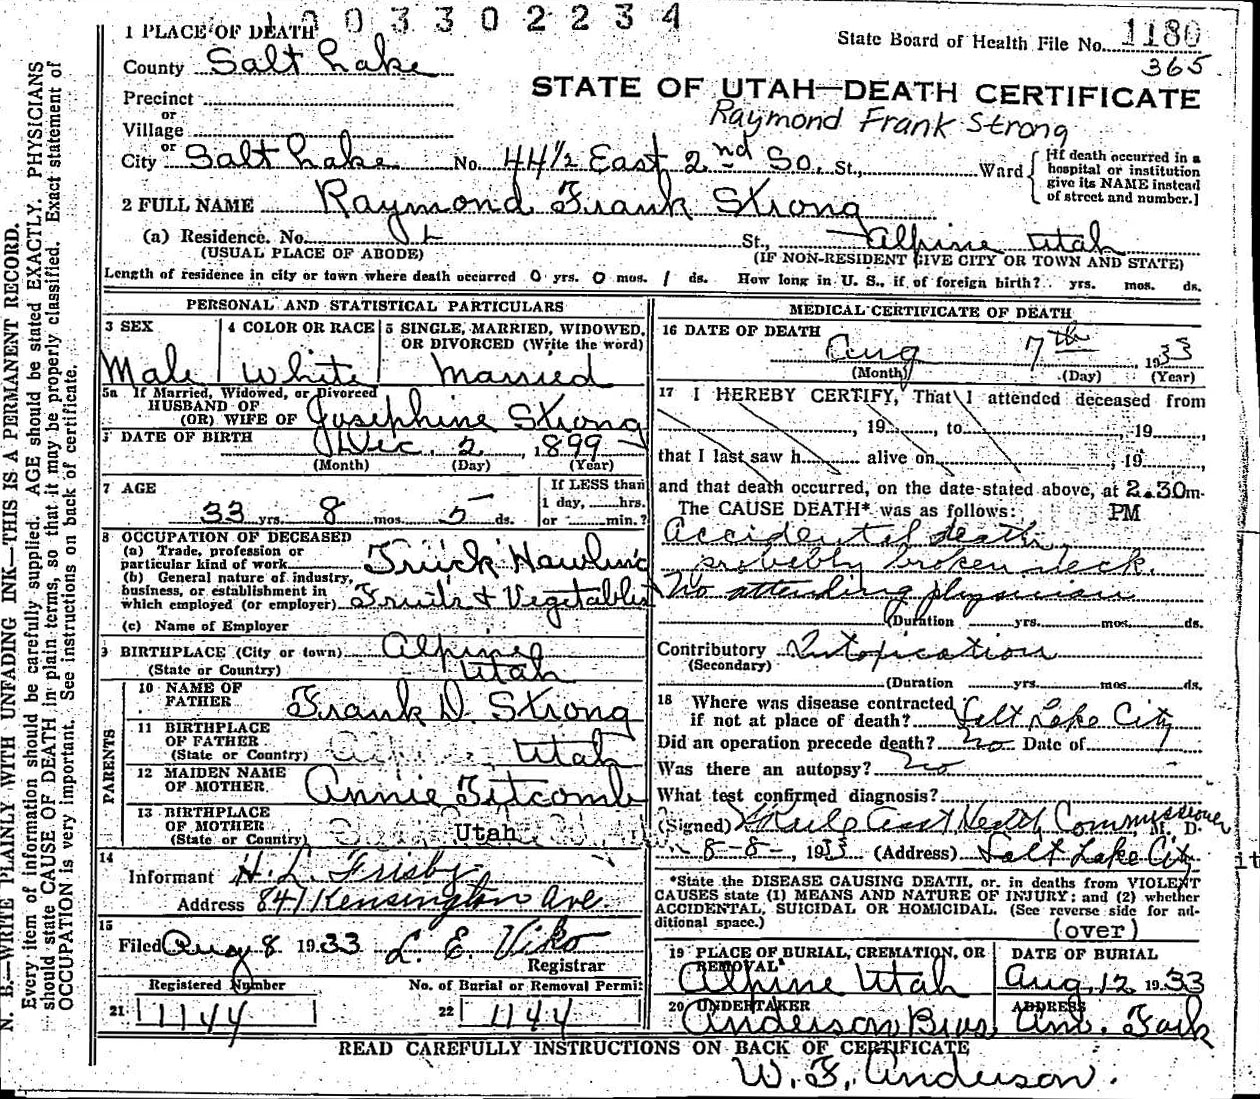 1003302234
1 PLACE OF DEATH
State Board of Health File No. 1180
365
County Salt Lake
STATE OF UTAH—DEATH CERTIFICATE
Precinct
or
Raymond Frank Strong
Village
or
City Salt Lake No. 44½ East 2nd So. St., Ward
[If death occurred in a hospital or institution give its NAME instead of street and number.]
2 FULL NAME Raymond Frank Strong
(a) Residence. No. St., Alpine Utah
(USUAL PLACE OF ABODE) (IF NON-RESIDENT GIVE CITY OR TOWN AND STATE)
Length of residence in city or town where death occurred 0 yrs. 0 mos. 1 ds. How long in U. S., if of foreign birth? yrs. mos. ds.
PERSONAL AND STATISTICAL PARTICULARS
3 SEX 4 COLOR OR RACE 5 SINGLE, MARRIED, WIDOWED, OR DIVORCED (Write the word)
Male White Married
5a If Married, Widowed, or Divorced
HUSBAND OF
(OR) WIFE OF Josephine Strong
DATE OF BIRTH Dec. 2, 1899
(Month) (Day) (Year)
7 AGE 33 yrs. 8 mos. 5 ds.
If LESS than 1 day, hrs. or min.?
8 OCCUPATION OF DECEASED
(a) Trade, profession or particular kind of work Truck Hawling
(b) General nature of industry, business, or establishment in which employed (or employer) Fruits & Vegetables
(c) Name of Employer
9 BIRTHPLACE (City or town) Alpine
(State or Country) Utah
PARENTS
10 NAME OF FATHER Frank D. Strong
11 BIRTHPLACE OF FATHER
(State or Country) Utah
12 MAIDEN NAME OF MOTHER Annie Titcomb
13 BIRTHPLACE OF MOTHER
(State or Country) Utah
14
Informant H. L. Frisby
Address 847 Kensington Ave.
15
Filed Aug 8 1933 L. E. Viko
Registrar
Registered Number No. of Burial or Removal Permit
21 1144 22 1144
MEDICAL CERTIFICATE OF DEATH
16 DATE OF DEATH
Aug 7th, 1933
(Month) (Day) (Year)
17 I HEREBY CERTIFY, That I attended deceased from
, 19 , to , 19 ,
that I last saw h alive on , 19
and that death occurred, on the date stated above, at 2.30m.
The CAUSE DEATH* was as follows: PM
Accidental death
probably broken neck.
No attending physician
(Duration yrs. mos. ds.
Contributory Intoxication
(Secondary)
(Duration yrs. mos. ds.
18 Where was disease contracted
if not at place of death? Salt Lake City
Did an operation precede death? no Date of
Was there an autopsy? no
What test confirmed diagnosis?
(Signed) Health Commissioner, M. D.
8-8-, 1933 (Address) Salt Lake City
*State the DISEASE CAUSING DEATH, or, in deaths from VIOLENT
CAUSES state (1) MEANS AND NATURE OF INJURY; and (2) whether
ACCIDENTAL, SUICIDAL OR HOMICIDAL. (See reverse side for additional space.)
(over)
19 PLACE OF BURIAL, CREMATION, OR REMOVAL DATE OF BURIAL
Alpine Utah Aug, 12 1933
20 UNDERTAKER ADDRESS
Anderson Bros. Am. Fork
READ CAREFULLY INSTRUCTIONS ON BACK OF CERTIFICATE
W. F. Anderson.
N. B.—WRITE PLAINLY WITH UNFADING INK—THIS IS A PERMANENT RECORD.
Every item of information should be carefully supplied. AGE should be stated EXACTLY. PHYSICIANS
should state CAUSE OF DEATH in plain terms, so that it may be properly classified. Exact statement of
OCCUPATION is very important. See instructions on back of certificate.